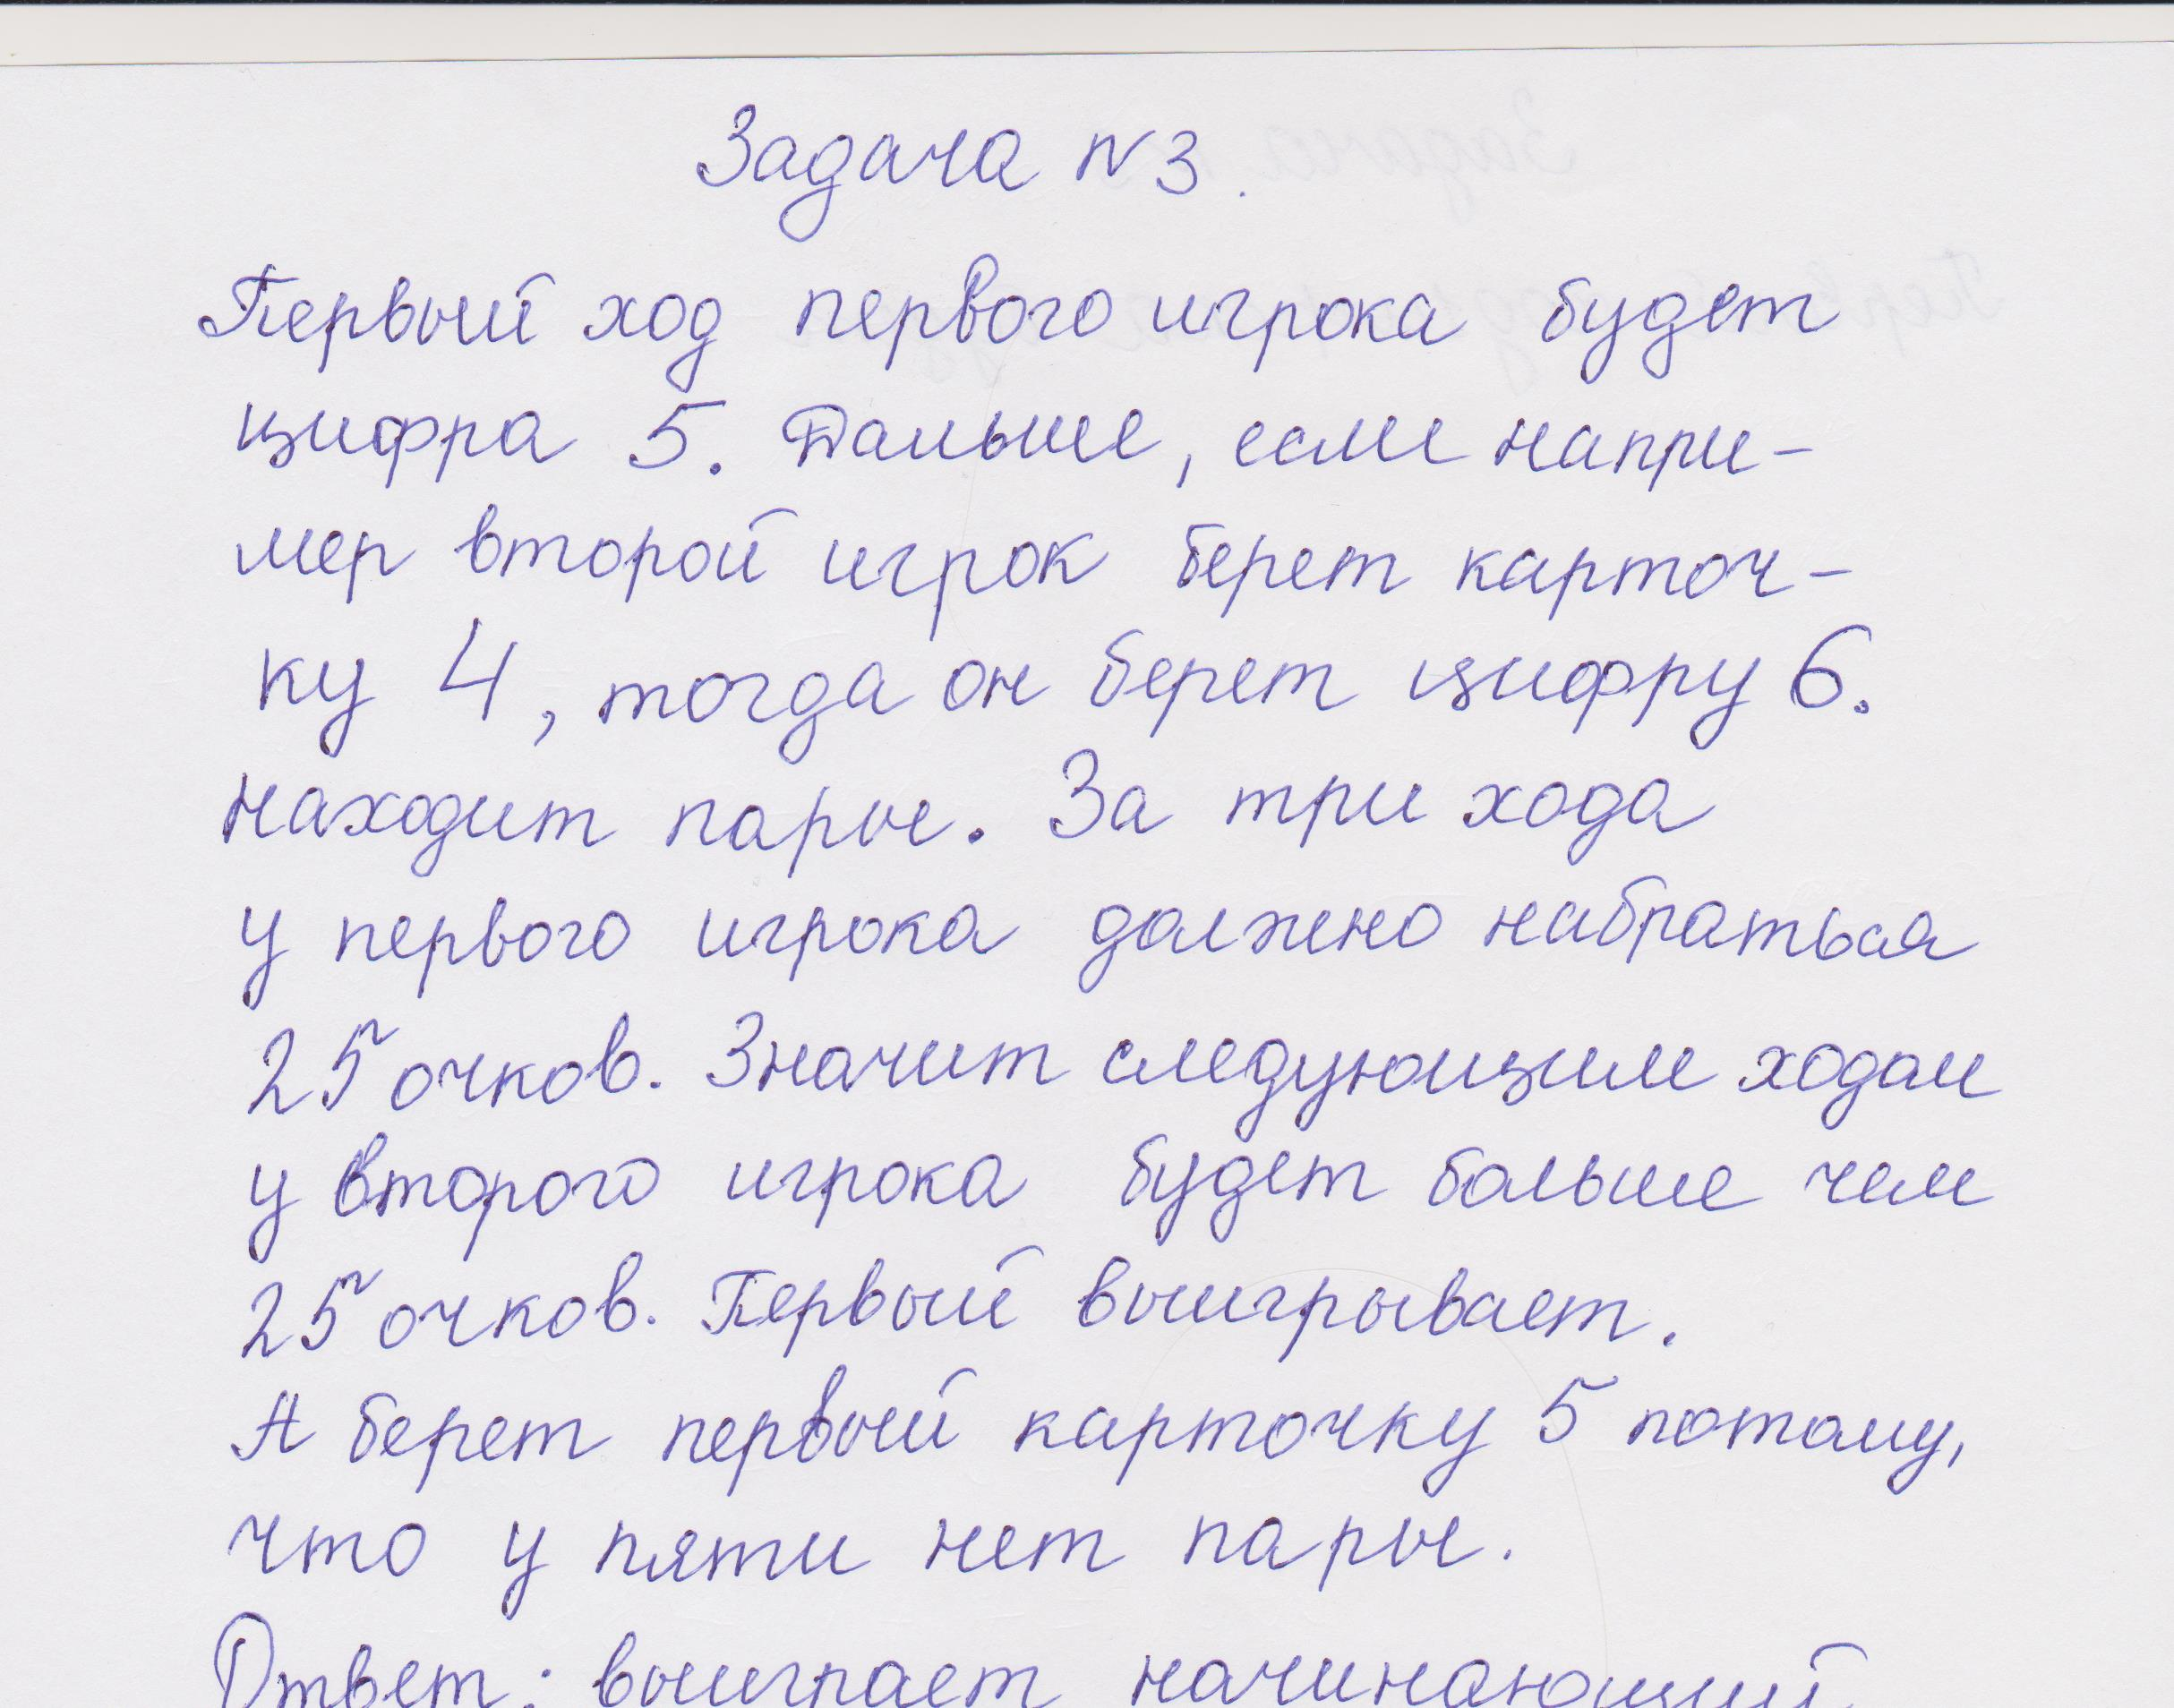 Задача N 3.
Первый ход первого игрока будет
цифра 5. Дальше, если напри-
мер второй игрок берет карточ-
ку 4, тогда он берет цифру 6.
находит пары. За три хода
у первого игрока должно набраться
25 очков. Значит следующим ходом
у второго игрока будет больше чем
25 очков. Первый выигрывает.
А берет первый карточку 5 потому,
что у пяти нет пары.
Ответ: выиграет начинающий